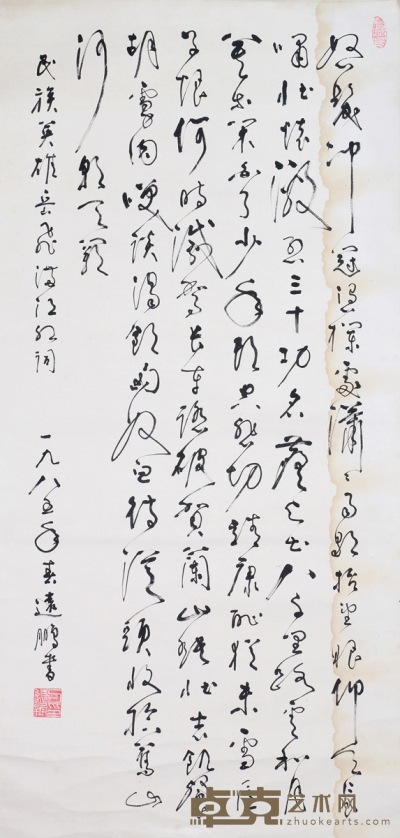 怒发冲冠凭栏处潇潇雨歇抬望眼仰天长
啸壮怀激烈三十功名尘与土八千里路云和月
莫等闲白了少年头空悲切靖康耻犹未雪臣
子恨何时灭驾长车踏破贺兰山缺壮志饥餐
胡虏肉笑谈渴饮匈奴血待从头收拾旧山
河朝天阙
民族英雄岳飞满江红词
一九八五年春远鹏书
卓克艺术网
zhuokearts.com